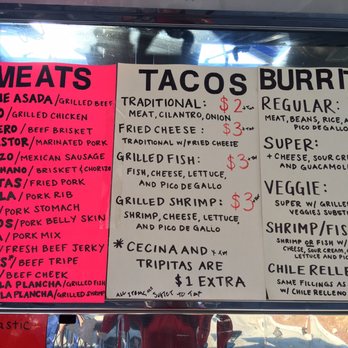 MEATS
E ASADA/GRILLED BEEF
O/GRILLED CHICKEN
ERO/BEEF BRISKET
STOR/MARINATED PORK
ZO/MEXICAN SAUSAGE
MANO/BRISKET & CHORIZO
TAS/FRIED PORK
LA/PORK RIB
/PORK STOMACH
OS/PORK BELLY SKIN
A/PORK MIX
/FRESH BEEF JERKY
S"/BEEF TRIPE
/BEEF CHEEK
LA PLANCHA/GRILLED FISH
LA PLANCHA/GRILLED SHRIMP
TACOS
TRADITIONAL: $2
MEAT, CILANTRO, ONION
FRIED CHEESE: $3
TRADITIONAL W/FRIED CHEESE
GRILLED FISH: $3
FISH, CHEESE, LETTUCE,
AND PICO DE GALLO
GRILLED SHRIMP: $3
SHRIMP, CHEESE, LETTUCE,
AND PICO DE GALLO
* CECINA AND
TRIPITAS ARE
$1 EXTRA
BURRIT
REGULAR:
MEAT, BEANS, RICE,
PICO DE GALLO
SUPER:
+ CHEESE, SOUR CRE
AND GUACAMOL
VEGGIE:
SUPER W/ GRILLED
VEGGIES SUBSTIT
SHRIMP/FIS
SHRIMP OR FISH W/
CHEESE, SOUR CREAM,
LETTUCE AND PICO DE
CHILE RELLE
SAME FILLINGS AS
W/ CHILE RELLENO
astic